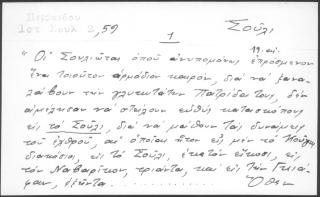 Περραιβού
Ιστ Σουλ 2, 59
Σούλι
1
19 αι.
"Οἱ Σουλιῶται ὁποῦ ἀνυπομόνως ἐπρόσμενον
ἕνα τοιοῦτον ἁρμόδιον καιρόν, διὰ νὰ ξανα-
λάβουν τὴν γλυκυτάτην Πατρίδα τους, δὲν
ἀμέλησαν νὰ στείλουν εὐθὺς κατασκόπους
εἰς τὸ Σούλι, διὰ νὰ μάθουν τὰς δυνάμεις
τοῦ ἐχθροῦ, αἱ ὁποῖαι ἦτον εἰς μὲν τὸ Κούγκι
διακόσιοι, εἰς τὸ Σούλι, ἑκατὸν εἴκοσι, εἰς
τὸν Ναβαρίκον, τριάντα, καὶ εἰς τὴν
ἑξῆντα.
Ὅθεν